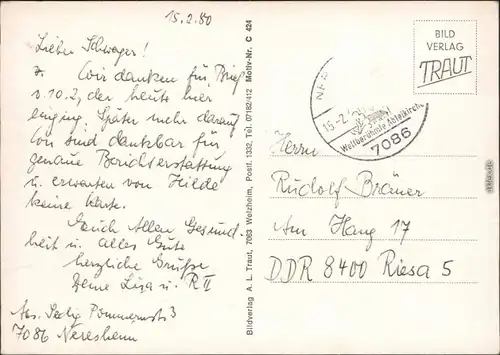 15.2.80
Lieber Schwager!
Wir danken für Brief
v. 10.2, der heute hier
einging. Später mehr darauf
Wir sind dankbar für
genaue Berichterstattung
u. erwarten von Hilde
keine Karte.
Euch Allen Gesund-
heit u. alles Gute
herzliche Grüße
Deine Lisa u. R II
Abs. Sedig Pommernstr 3
7086 Neresheim
Bildverlag A. L. Traut, 7063 Welzheim, Postf. 1332, Tel. 07182/412 Motiv-Nr. C 424
BILD
VERLAG
TRAUT
15.-2.
Weltberühmte Abteikirche
7086
Herrn
Rudolf Bräuer
Am Hang 17
DDR 8400 Riesa 5